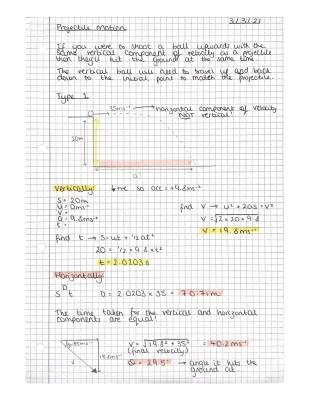 3/3/21
Projectile Motion
If you were to shoot a ball upwards with the
same vertical component of velocity as a projectile
then they'll hit the ground at the same time.
The vertical ball will need to travel up and back
down to the initial point to match the projectile.
Type 1
35ms⁻¹ → horizontal component of velocity
NOT vertical!
20m
d?
Vertically: ↓+ve so acc = +9.8ms⁻²
S = 20m
U = 0ms⁻¹
V =
a = 9.8ms⁻²
t =
find V → U² + 2aS = V²
V = √2 × 20 × 9.8
V = 19.8ms⁻¹
find t → S = ut + ½at²
20 = ½ × 9.8 × t²
t = 2.0203s
Horizontally:
D
S t D = 2.0203 × 35 = 70.71m
The time taken for the vertical and horizontal
components are equal!
35ms⁻¹
19.8ms⁻¹
V
V = √19.8² + 35² = 40.2ms⁻¹
(final velocity)
θ = 29.5° → angle it hits the
ground at